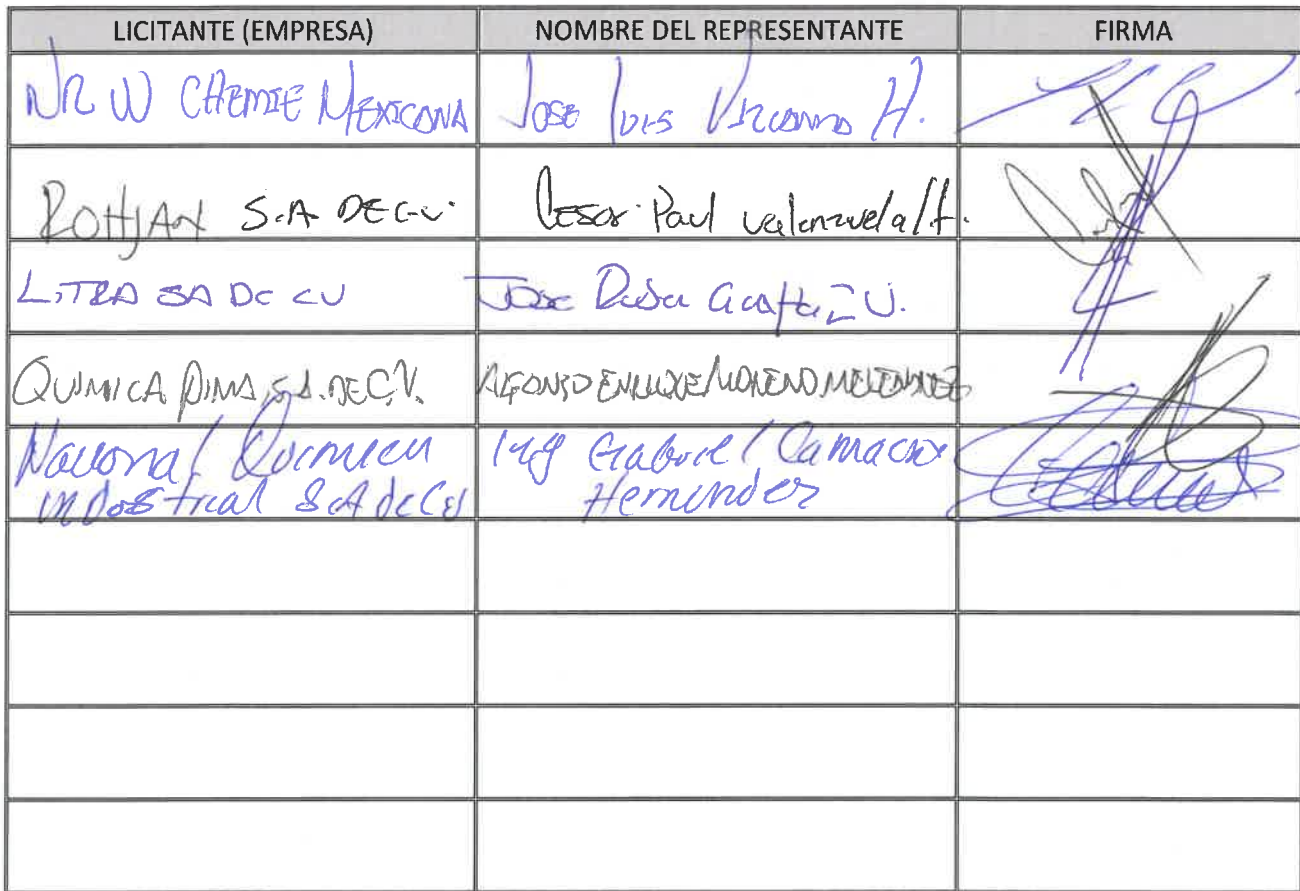 LICITANTE (EMPRESA) NOMBRE DEL REPRESENTANTE FIRMA
NRW CHEMIE MEXICANA JOSE LUIS VIZCAINO H.
ROHJAN S.A DE C.V. Cesar Paul Valenzuela H.
LITRA SA DE CV JOSE V.
QUIMICA DIMA, S.A. DE C.V. ALFONSO ENRIQUE MORENO MELENDREZ
Nacional Quimica Ing Gabriel Camacho
industrial SA de CV Hernandez